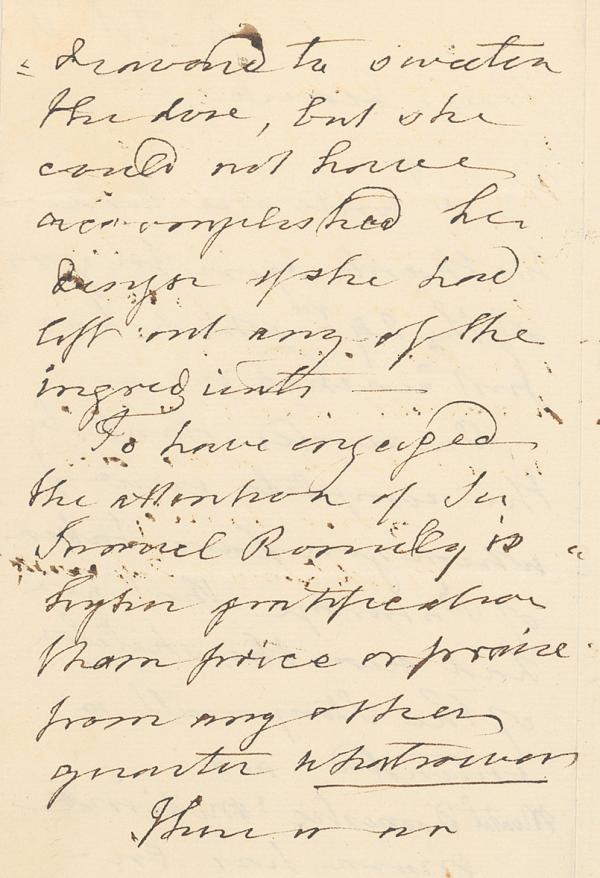 = deavored to sweeten
the dose, but she
could not have
accomplished her
design if she had
left out any of the
ingredients —
To have engaged
the attention of Sir
Samuel Romilly is
higher gratification
than price or praise
from any other
quarter whatsoever
There is no